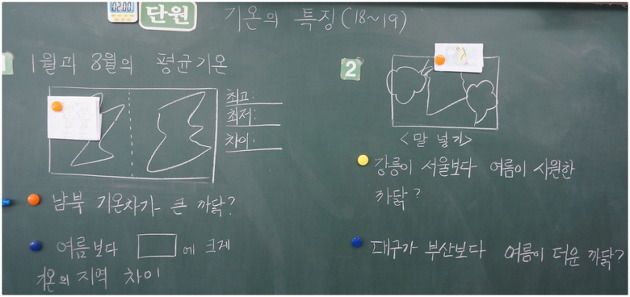 02:00
단원 기온의 특징(18~19)
1
1월과 8월의 평균기온
최고:
최저:
차이:
남북 기온차가 큰 까닭?
여름보다 에 크게
기온의 지역 차이
2
<말 넣기>
강릉이 서울보다 여름이 시원한
까닭?
대구가 부산보다 여름이 더운 까닭?